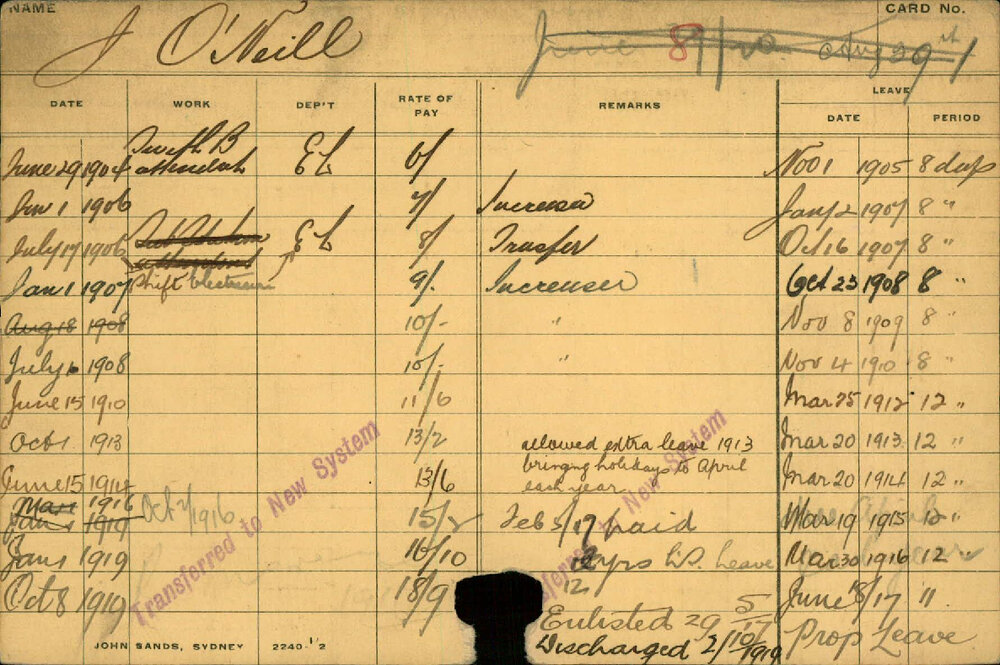 NAME
CARD No.
J O'Neill
June 8/20 Aug 29th
DATE WORK DEP'T RATE OF PAY REMARKS LEAVE
DATE PERIOD
June 29 1904 Swith B attendant EL 6/ Nov 1 1905 8 days
Jan 1 1906 7/ Increase Jany 2 1907 8 "
July 17 1906 EL 8/ Trasfer Oct 16 1907 8 "
Jan 1 1907 Shift electrician 9/. Increase Oct 23 1908 8 "
Aug 18 1908 10/- " Nov 8 1909 8 "
July 1908 10/- " Nov 4 1910 8 "
June 15 1910 11/6 Mar 25 1912 12 "
Oct 1 1913 13/2 allowed extra leave 1913 Mar 20 1913 12 "
bringing holidays to April
June 15 1914 13/6 each year Mar 20 1914 12 "
Mar 1916
Jan 1 1919 Oct 1916 15/2 Feb 5/17 paid Mar 19 1915 12 "
Jan 1 1919 16/10 12 yrs L.S. Leave Mar 30 1916 12 "
Oct 8 1919 18/9 12/ June 18/17 11
Enlisted 29 5/17
Discharged 2/10/1919 Prop Leave
Transferred to New System
Transferred to New System
JOHN SANDS, SYDNEY 2240-½2